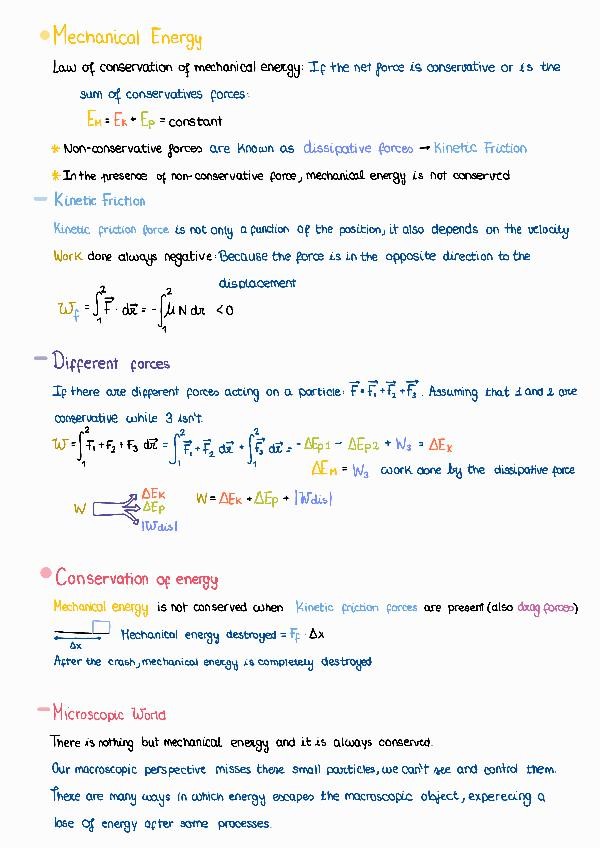 Mechanical Energy
Law of conservation of mechanical energy: If the net force is conservative or is the
sum of conservatives forces:
E_M = E_K + E_P = constant
* Non-conservative forces are known as dissipative forces → Kinetic Friction
* In the presence of non-conservative force, mechanical energy is not conserved
– Kinetic Friction
Kinetic friction force is not only a function of the position, it also depends on the velocity
Work done always negative: Because the force is in the opposite direction to the
displacement
W_f = ∫₁² F⃗ · dx⃗ = -∫₁² μ N dx < 0
– Different forces
If there are different forces acting on a particle: F⃗ = F⃗₁ + F⃗₂ + F⃗₃. Assuming that 1 and 2 are
conservative while 3 isn't.
W = ∫₁² F₁ + F₂ + F₃ dx⃗ = ∫₁² F⃗₁ + F⃗₂ dx⃗ + ∫₁² F⃗₃ dx⃗ = -ΔEp1 - ΔEp2 + W₃ = ΔE_K
ΔE_M = W₃ work done by the dissipative force
W ΔE_K ΔE_P |Wdis| W = ΔE_K + ΔE_P + |Wdis|
Conservation of energy
Mechanical energy is not conserved when Kinetic friction forces are present (also drag forces)
Mechanical energy destroyed = F_f · Δx
Δx
After the crash, mechanical energy is completely destroyed
– Microscopic World
There is nothing but mechanical energy and it is always conserved.
Our macroscopic perspective misses these small particles, we can't see and control them.
There are many ways in which energy escapes the macroscopic object, experecing a
lose of energy after some processes.